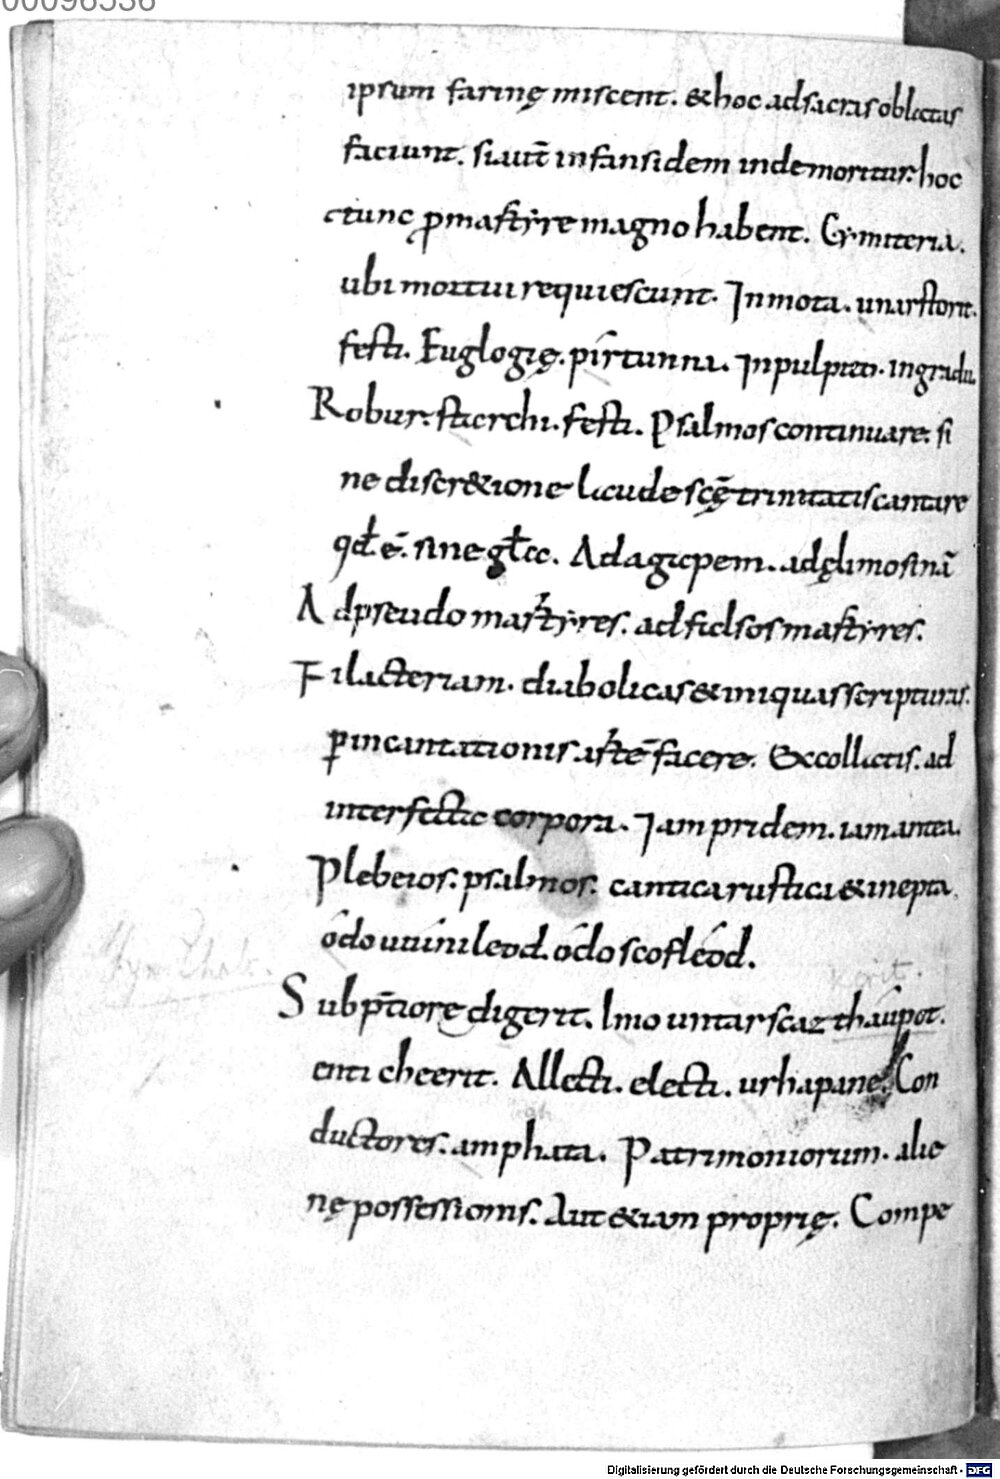 00096536
ipsum farinę miscent. & hoc ad sacras oblatas
faciunt. si aut̄ infans idem inde moritur. hoc
tunc ꝓ martyre magno habent. Cymiteria.
ubi mortui requiescunt. In mota. unarstorit.
festi. Euglogię. pirtunni. In pulpito. in gradu.
Robur. starchi. festi. Psalmos continuare. si
ne discr&ione laude scę̄ trinitatis cantare
qđ. ē. sine głа. Ad agapem. ad ęlimosinā
Ad pseudo martyres. ad falsos martyres.
Filacteriam. diabolicas & iniquas scripturas.
ꝑ incantationis artē facere. Ex collectis. ad
interfecta corpora. Jam pridem. iam antea.
Plebeios. psalmos. cantica rustica & inepta.
odo uuinileod. odo scofleod.
Sub p̄tiore digerit.
enti cheerit. Allecti. electi. urhapane. Con
ductores. amphata. Patrimoniorum. alie
nę possessionis. Aut &iam proprię. Compe
Digitalisierung gefördert durch die Deutsche Forschungsgemeinschaft - DFG